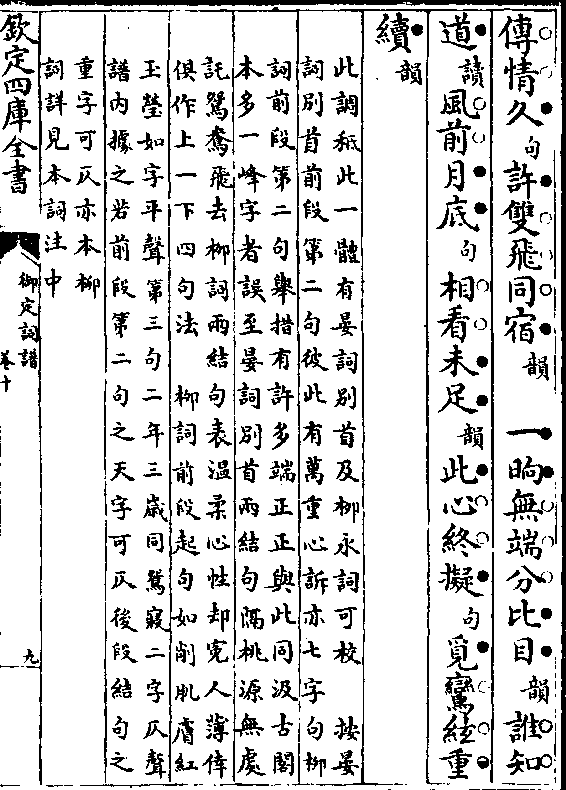 傳情久句許雙飛同宿韻　一晌無端分比目韻誰知
道讀風前月底句相看未足韻此心終擬句覓鸞絃重
續韻
此調秪此一體有晏詞别首及柳永詞可校　按晏
詞别首前段第二句彼此有萬重心訴亦七字句柳
詞前段第二句舉措有許多端正正與此同汲古閣
本多一峰字者誤至晏詞别首兩結句隔桃源無處
託鴛鴦飛去柳詞兩結句表温柔心性却寃人薄倖
俱作上一下四句法　柳詞前段起句如削肌膚紅
玉瑩如字平聲第三句二年三歲同鴛寢二字仄聲
譜内據之若前段第二句之天字可仄後段結句之
重字可仄亦本柳
詞詳見本詞注中
欽定四庫全書
御定詞譜
卷十
九